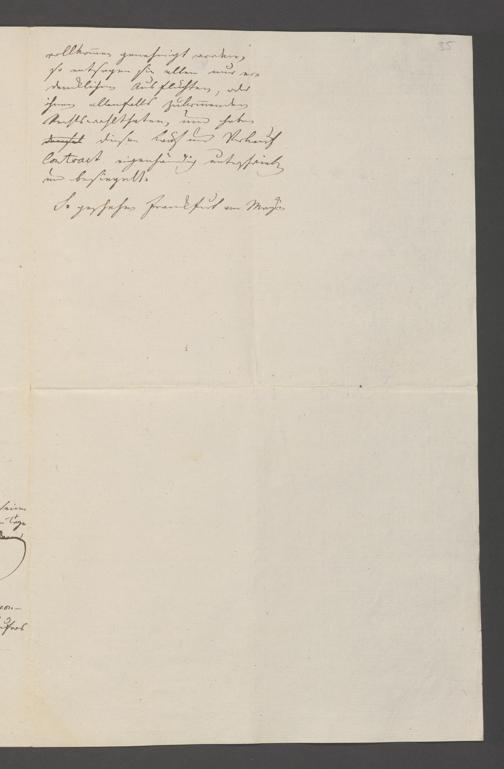 35
vollkommen genehmigt worden,
so entsagen sie allen nur er-
denklichen Ausflüchten, oder
ihnen allenfalls zukommenden
Rechtswohlthaten, und haben
diesen Kauf und Verkauf
Contract eigenhändig unterschrieben
und besiegelt.
So geschehen Frankfurt am Mayn